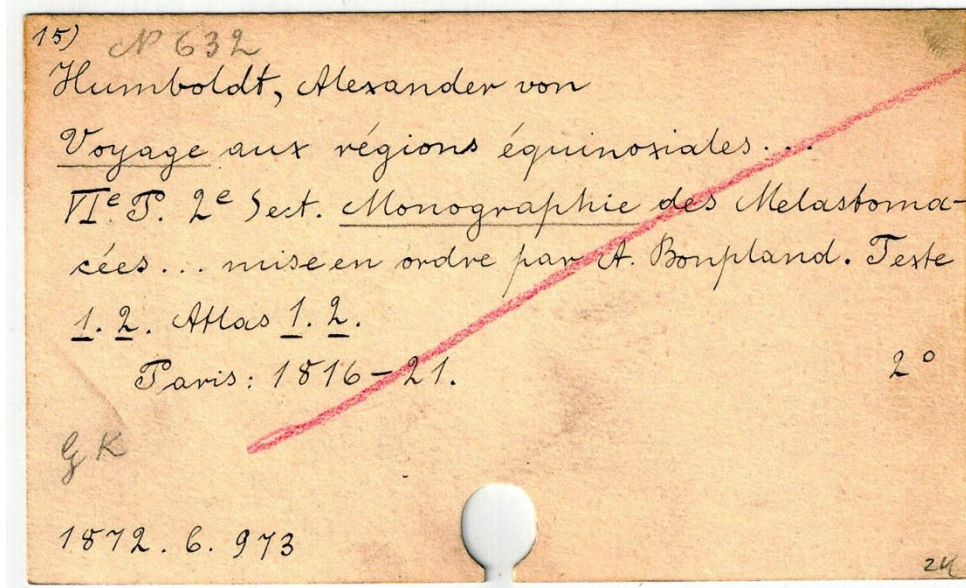 15)
N 632
Humboldt, Alexander von
Voyage aux régions équinoxiales...
VIe. P. 2e Sect. Monographie des Melastoma-
cées... mise en ordre par A. Bonpland. Texte
1. 2. Atlas 1. 2.
Paris: 1816-21.
2°
GK
1872. 6. 973